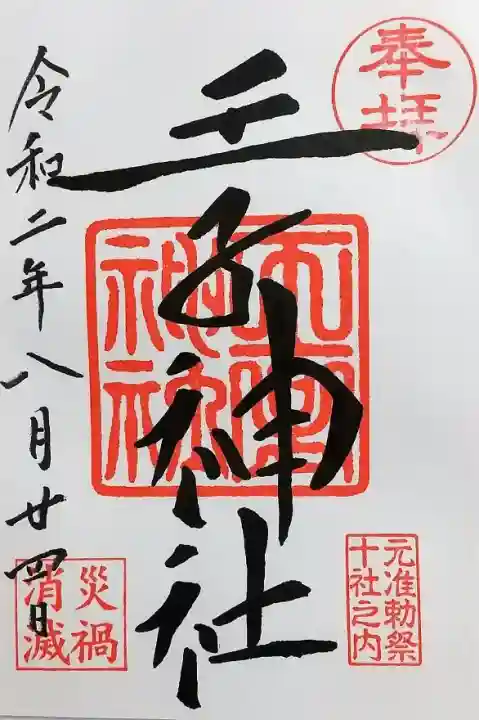 奉拝
王子神社
令和二年八月廿四日
元准勅祭
十社之内
災禍
消滅